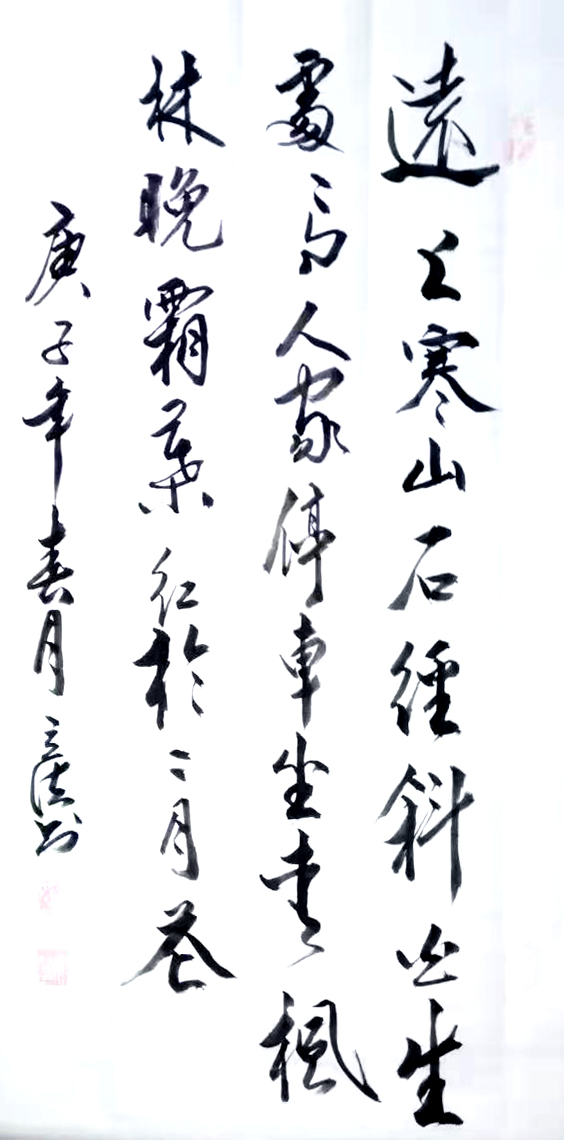 遠上寒山石徑斜云生
處有人家停車坐愛楓
林晚霜葉紅於二月花
庚子年春月书